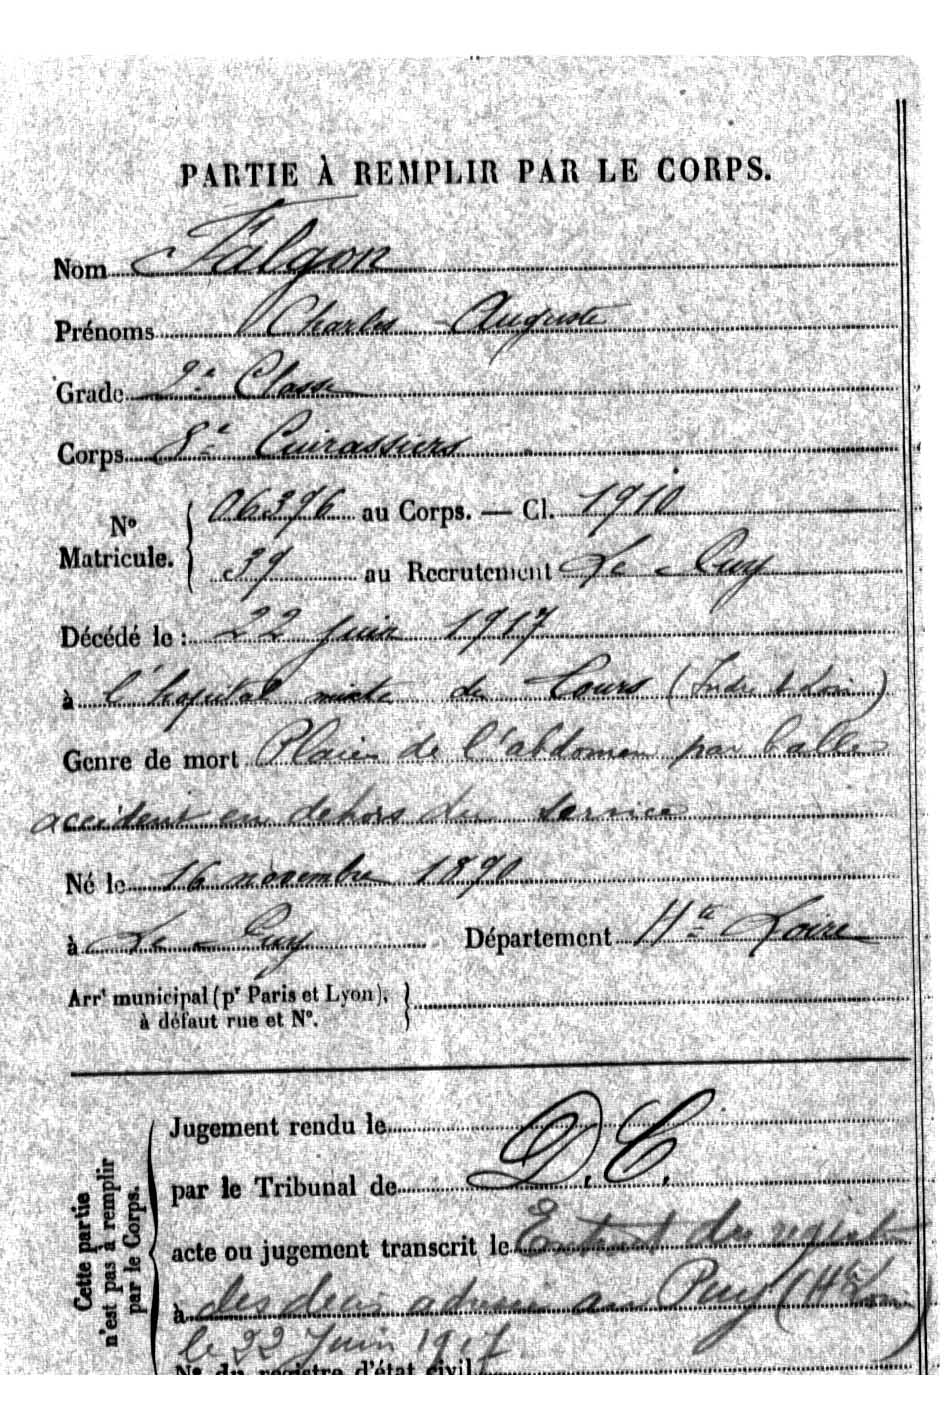 PARTIE À REMPLIR PAR LE CORPS.
Nom Falgon
Prénoms Charles Auguste
Grade 2e Classe
Corps 8e Cuirassiers
No Matricule. { 06376 au Corps. — Cl. 1910
39 au Recrutement Le Puy
Décédé le : 22 juin 1917
à l'hopital mixte de Tours (Indre & Loire)
Genre de mort Plaie de l'abdomen par balle
accident en dehors du service
Né le 16 novembre 1890
à Le Puy Département Hte Loire
Arrt municipal (pr Paris et Lyon), }
à défaut rue et No.
Cette partie n'est pas à remplir par le Corps.
Jugement rendu le
par le Tribunal de D.C.
acte ou jugement transcrit le Extrait du regist
à des au Puy (Hte Loire)
le 22 Juin 1917
No du registre d'état civil